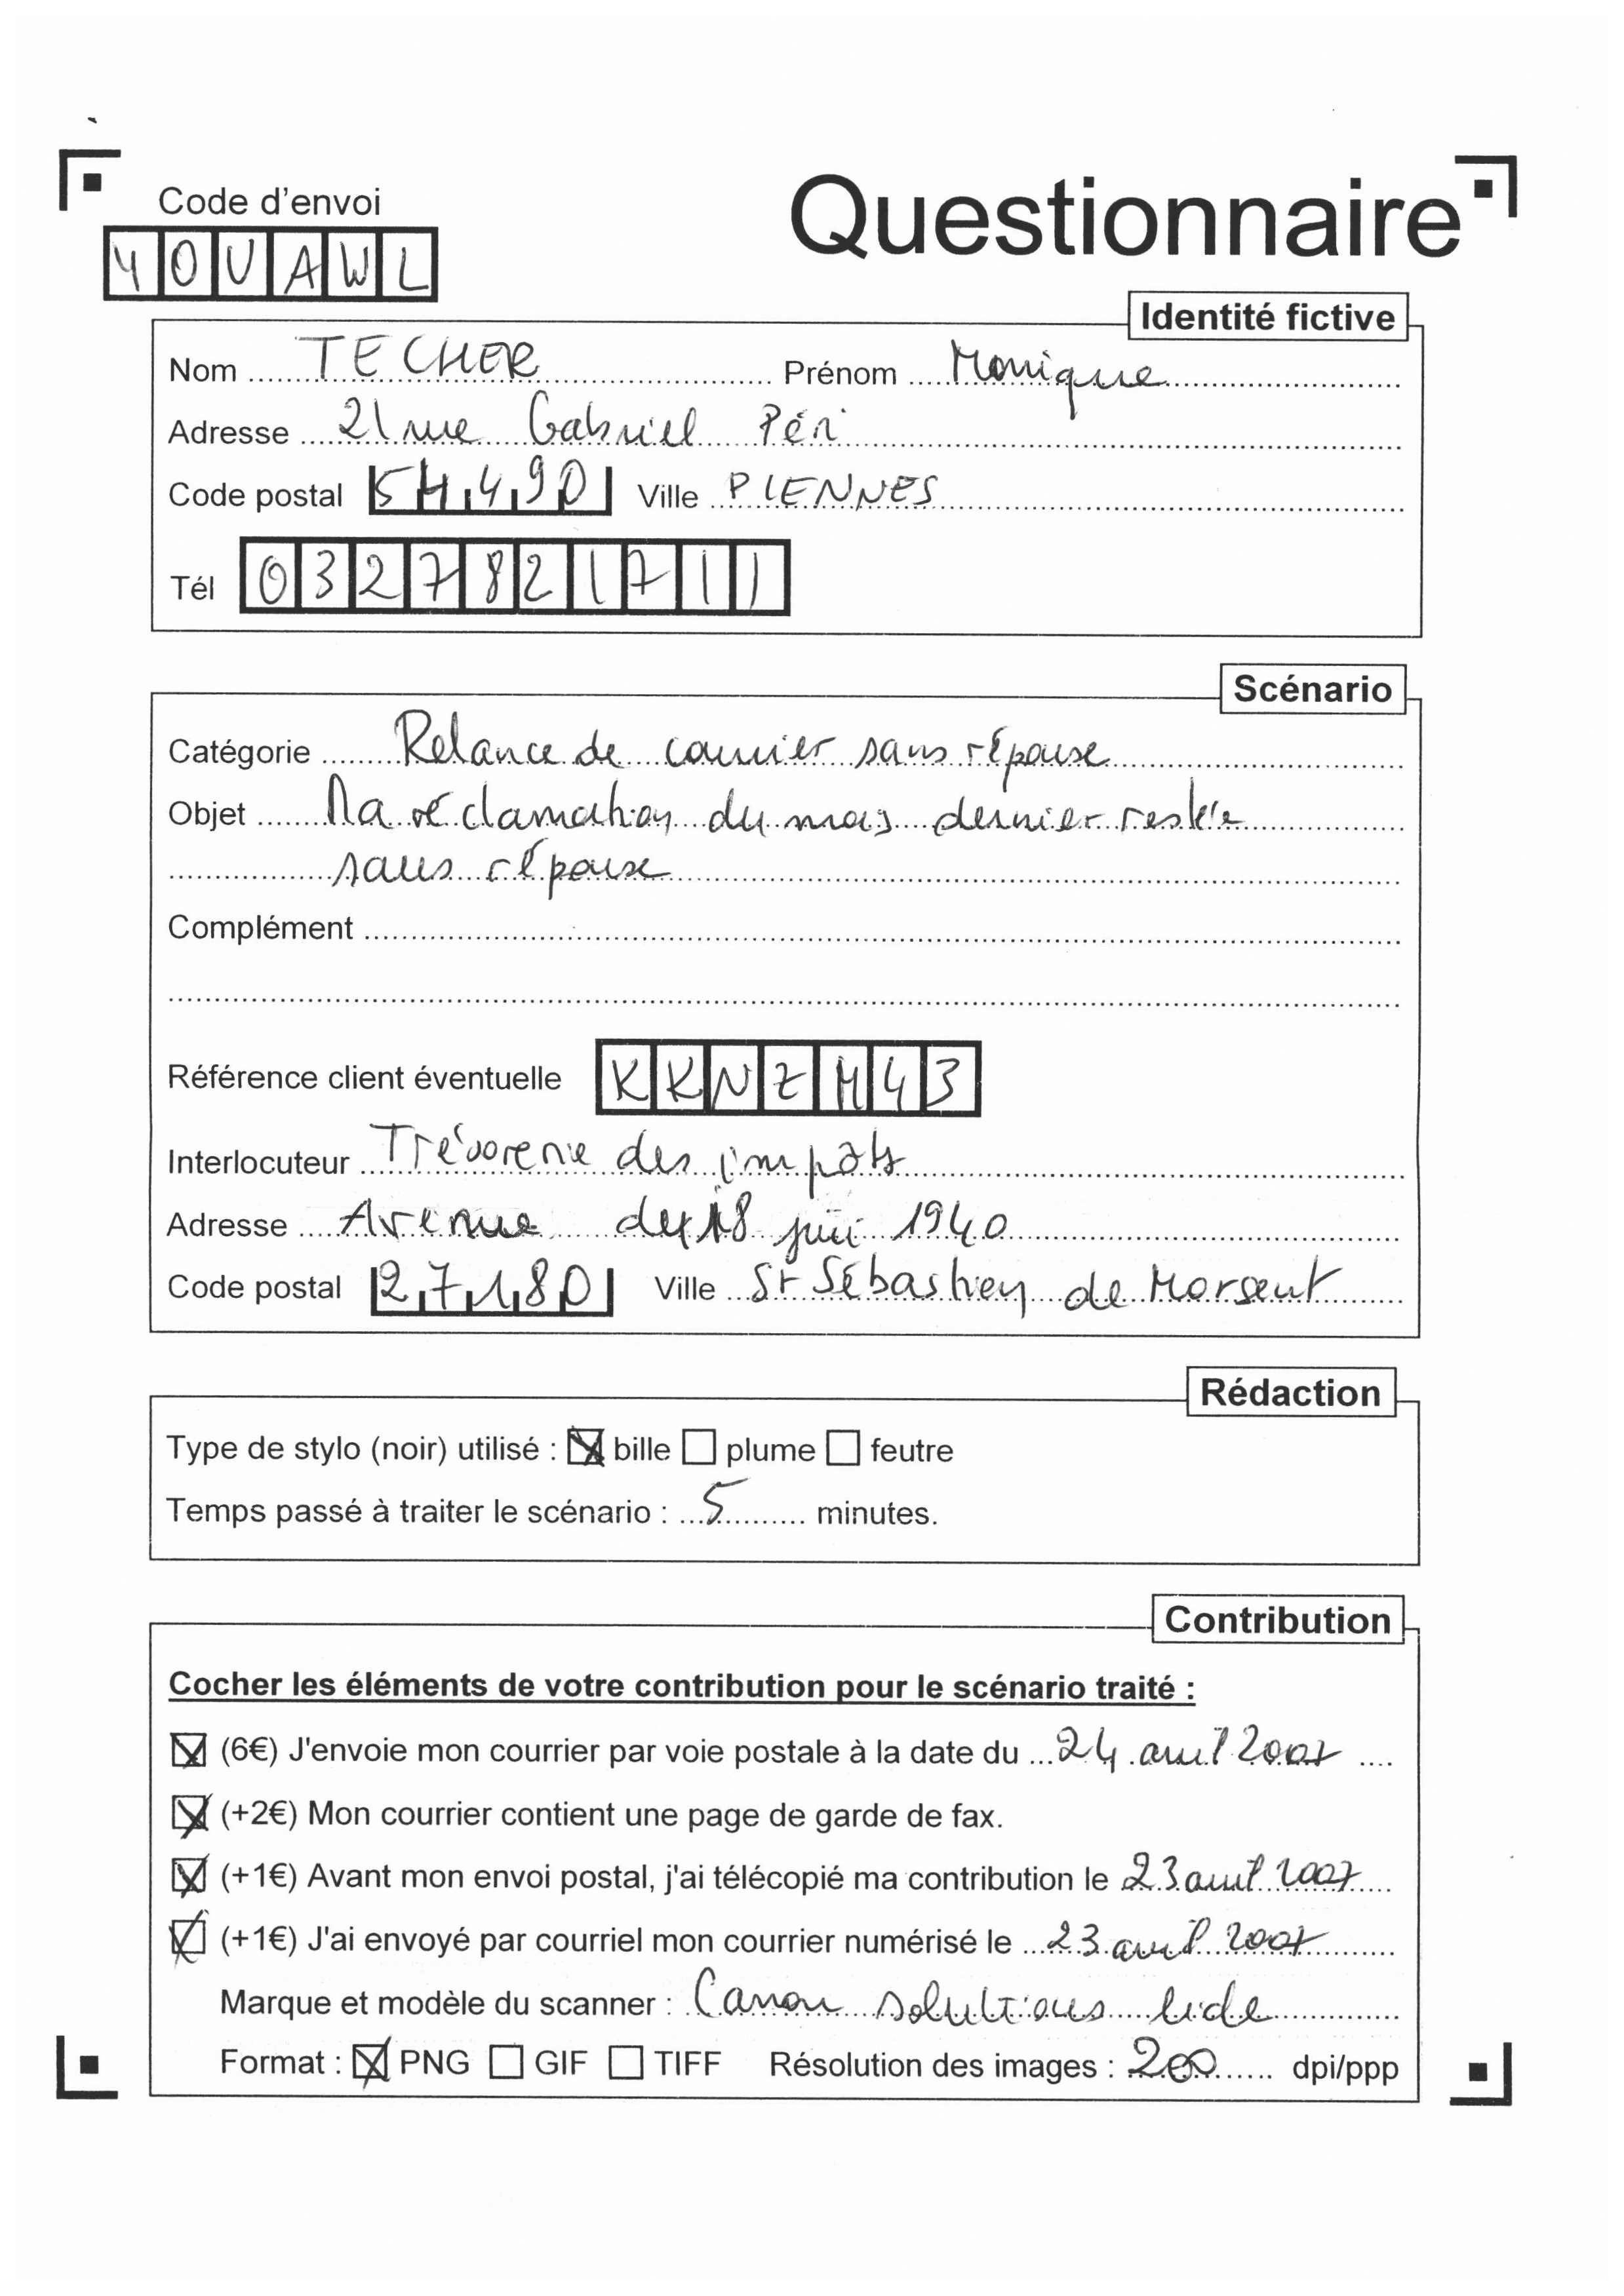 Code d'envoi
Questionnaire
YOUAWL
Identité fictive
Nom TECHER Prénom Monique
Adresse 21 rue Gabriel Péri
Code postal 54490 Ville PIENNES
Tél 0327821711
Scénario
Catégorie Relance de courrier sans réponse
Objet Ma réclamation du mois dernier restée
sans réponse
Complément
Référence client éventuelle KKNZM43
Interlocuteur Trésorerie des impôts
Adresse Avenue du 18 juin 1940
Code postal 27180 Ville St Sébastien de Morsent
Rédaction
Type de stylo (noir) utilisé : bille plume feutre
Temps passé à traiter le scénario : 5 minutes.
Contribution
Cocher les éléments de votre contribution pour le scénario traité :
(6€) J'envoie mon courrier par voie postale à la date du 24 avril 2007
(+2€) Mon courrier contient une page de garde de fax.
(+1€) Avant mon envoi postal, j'ai télécopié ma contribution le 23 avril 2007
(+1€) J'ai envoyé par courriel mon courrier numérisé le 23 avril 2007
Marque et modèle du scanner : Canon solutions lide
Format : PNG GIF TIFF Résolution des images : 200 dpi/ppp